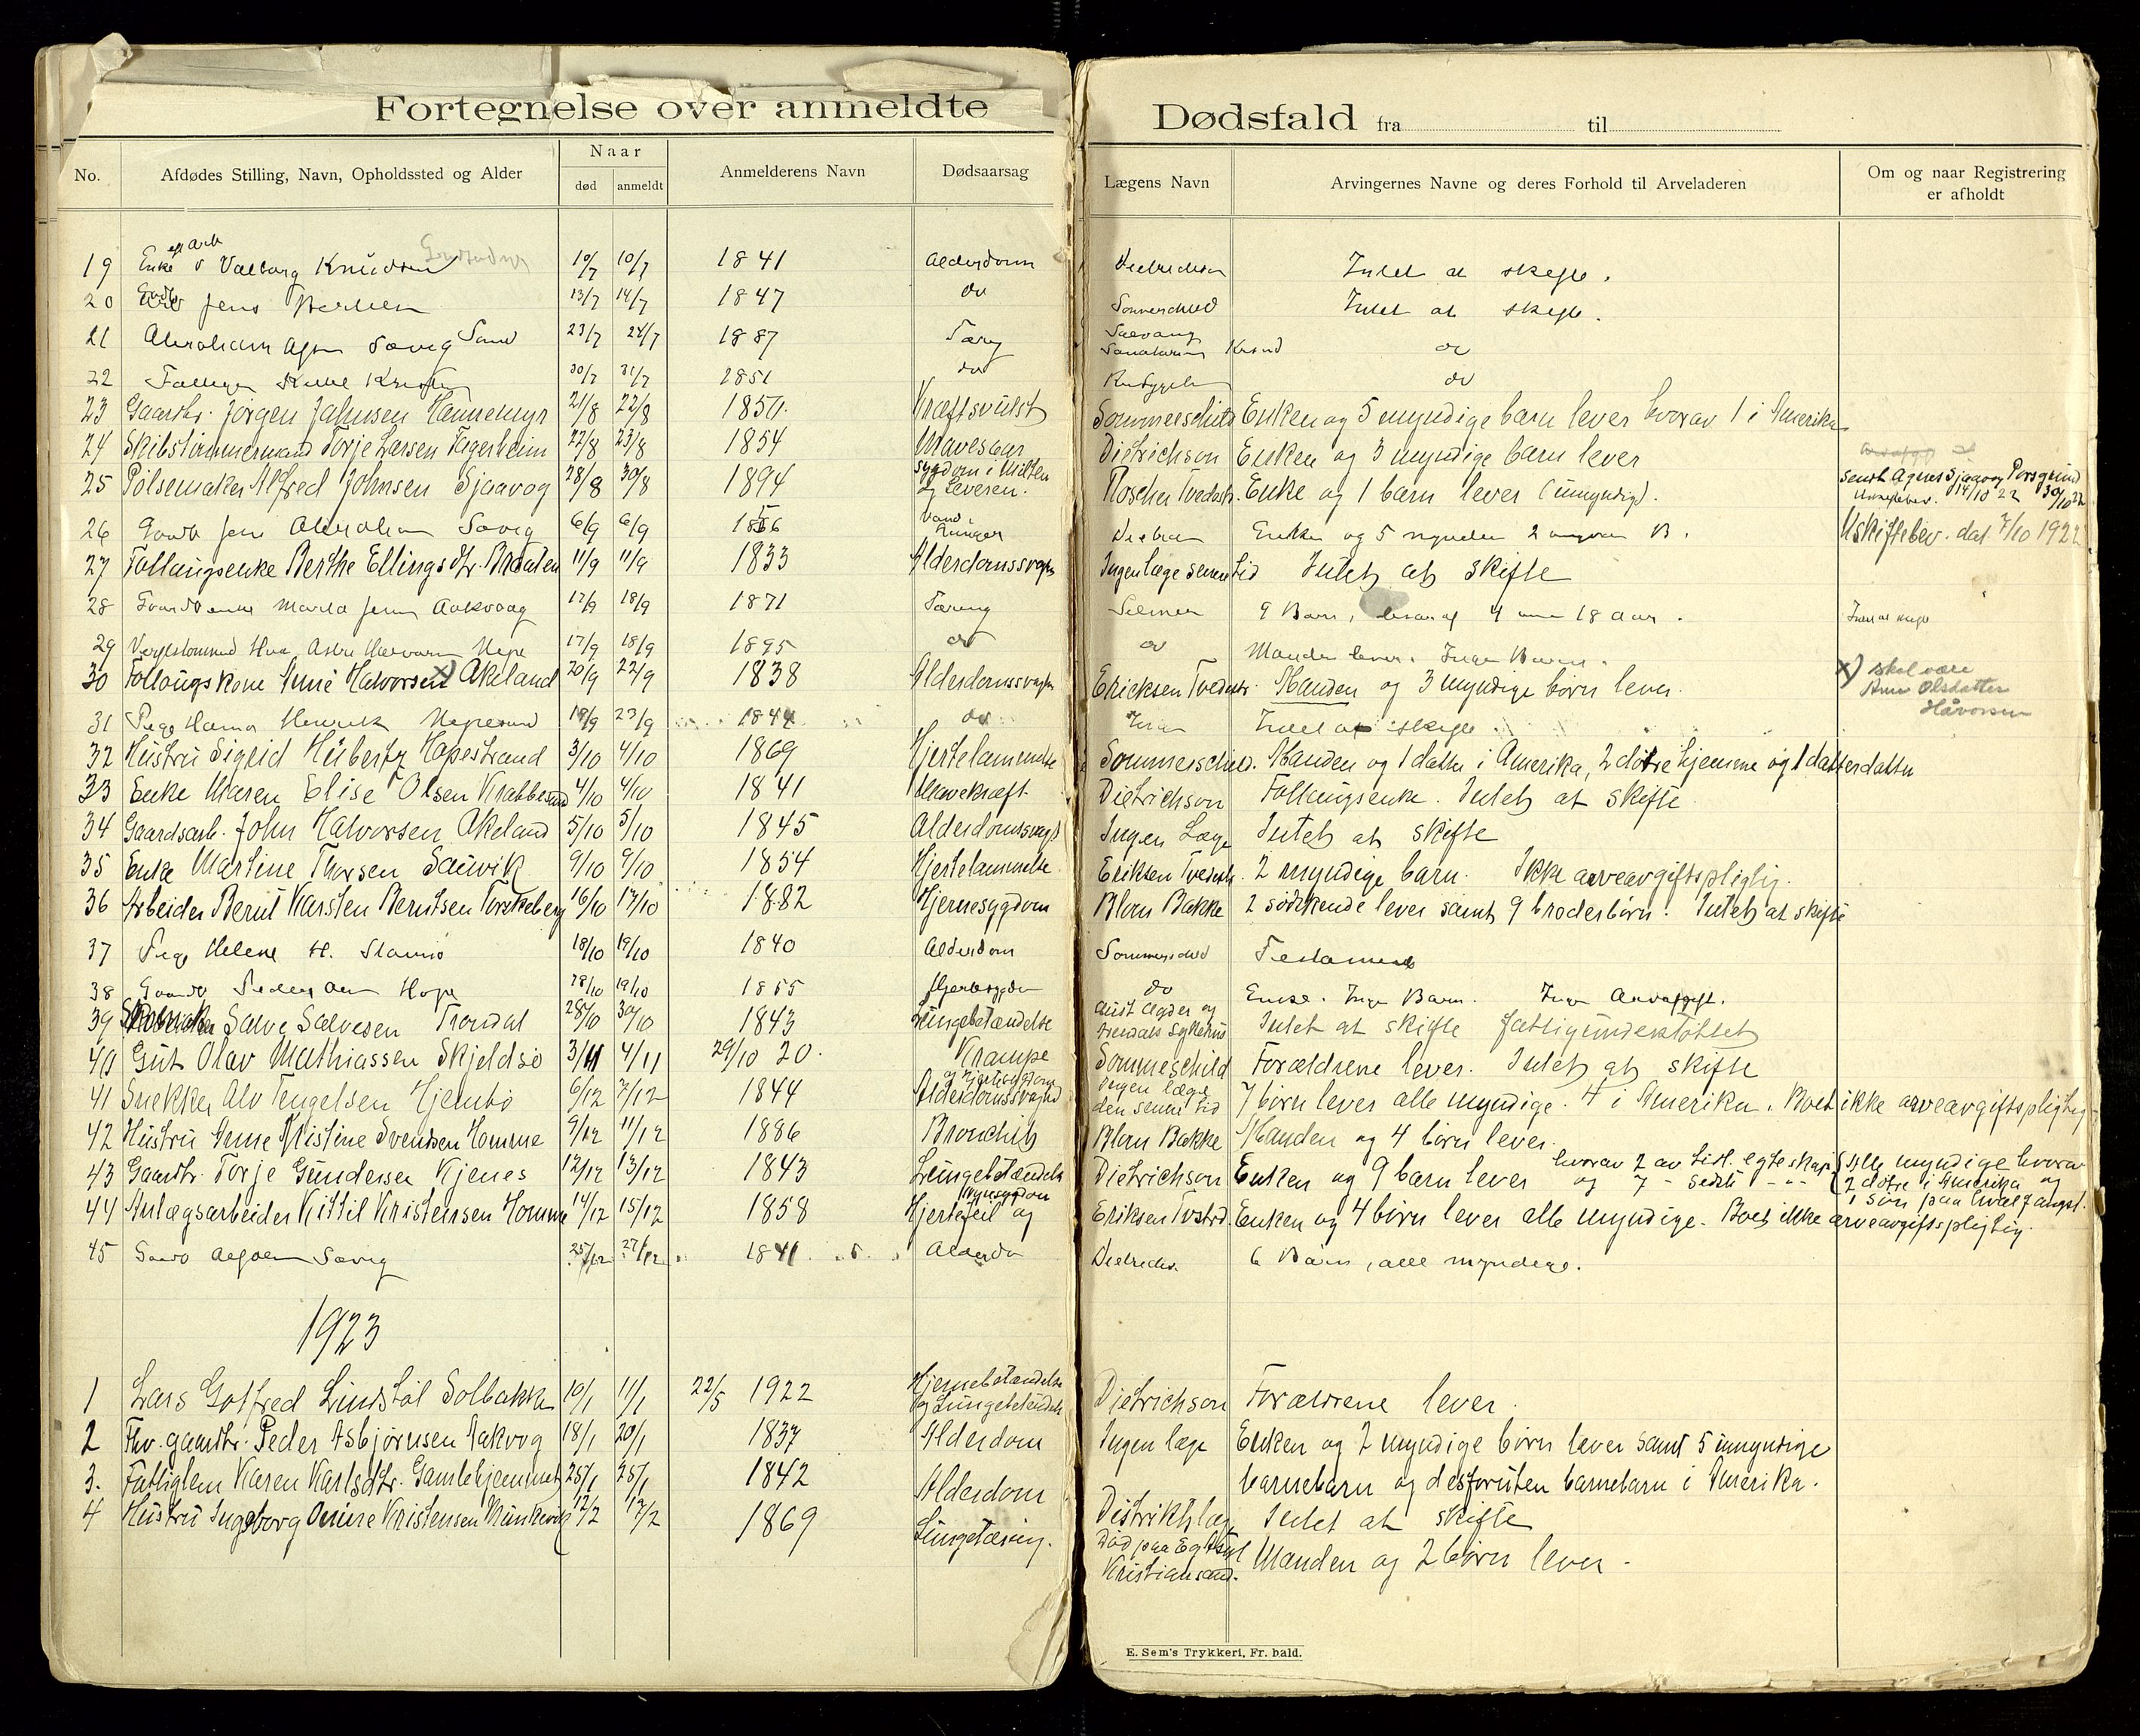 Fortegnelse over anmeldte Dødsfald fra til
No. Afdødes Stilling, Navn, Opholdssted og Alder Naar død anmeldt Anmelderens Navn Dødsaarsag Lægens Navn Arvingernes Navne og deres Forhold til Arveladeren Om og naar Registrering er afholdt
19 Enke eft Arb Valborg Knudsen 10/7 10/7 1841 Alderdom Intet at skifte.
20 Jens 13/7 14/7 1847 do Sommerschild Intet at skifte.
21 Abraham Sævig 23/7 24/7 1887 Tæring do
22 30/7 31/7 1851 do do
23 Gaardbr. Jørgen Jahnsen Hannemyr 21/8 22/8 1850. Kræftsvulst Sommerschild Enken og 5 myndige barn lever hvorav 1 i Amerika
24 Skibstømmermand Torje Larsen Fagerheim 22/8 23/8 1854 Mavesaar Dietrichson Enken og 3 myndige barn lever
25 Pølsemaker Alfred Johnsen Sjaavog 28/8 30/8 1894 Sygdom i Milten og Leveren. Tvedestr. Enke og 1 barn lever (umyndig). sendt Agnes Sjaavog Porsgrund 14/10 22 30/10 22
26 Gaardb Jens Abraham Sævig 6/9 6/9 Lunger Enken og 5 2 B. Uskiftebev. dat 7/10 1922
27 Follaugsenke Berthe Ellingsdtr. Braaten 11/9 11/9 1833 Alderdomssvaghet Ingen læge senere tid Intet at skifte
28 Jens Aakvaag 17/9 18/9 1871 Tæring 9 Barn, hvoraf 4 18 Aar. Intet at skifte
29 17/9 18/9 1895 do do Manden lever. Ingen Barn.
30 Follaugskone Anne Halvorsen x) Akeland 20/9 22/9 1838 Alderdomssvaghet Ericksen Tvedestr. Manden og 3 myndige børn lever. x) skal være Anne Olsdatter Håvorsen
31 Pige Hanna Henrik 19/9 23/9 1844 do Intet at skifte
32 Hustru Sigrid Hübertz Hopestrand 3/10 4/10 1869 Hjertelammelse Sommerschild. Manden og 1 datter i Amerika, 2 døtre hjemme og 1 datterdatter
33 Enke Maren Elise Olsen Krabbesund 4/10 4/10 1841 Mavekræft Dietrichson Follaugsenke. Intet at skifte.
34 Gaardsarb. John Halvorsen Akeland 5/10 5/10 1845 Alderdomssvagh Ingen Læge Intet at skifte
35 Enke Martine Thorsen Sauvik 9/10 9/10 1854 Hjertelammelse. Eriksen Tvedestr. 2 myndige barn. Ikke arveavgiftspligtig.
36 Arbeider Bernt Karsten Berntsen Torskeberg 16/10 17/10 1882 Hjernesygdom Blom Bakke 2 sødskende lever samt 9 broderbørn. Intet at skifte
37 Pige Helene H. Stamsø 18/10 19/10 1840 Alderdom Sommerschild Testament
38 Gaardb Peder Hope 18/10 19/10 1855 Hjertesygdom do Enke. Ingen Barn. Ingen Arveafgift.
39 Salve Salvesen Trondal 28/10 30/10 1843 Lungebetændelse Aust Agder og Arendals Sykehus Intet at skifte fattigunderstøttet
40 Gut Olav Mathiassen Skjeldsø 3/11 4/11 29/10 20. Krampe Sommeschild Forældrene lever. Intet at skifte
41 Snekker Alv Tengelsen Hjembø 6/12 7/12 1844 Alderdomssvaghed Ingen læge den senere tid 7 børn lever alle myndige. 4 i Amerika. Boet ikke arveavgiftspligtig.
42 Hustru Anne Kristine Svendsen Homme 9/12 11/12 1886 Bronchit Blom Bakke Manden og 4 børn lever.
43 Gaardbr. Torje Gundersen Kjenes 12/12 13/12 1843 Lungebetændelse Dietrichson Enken og 9 barn lever hvorav 2 av tidl. egteskap og 7 - sidste - " - (Alle myndige hvorav 2 døtre i Amerika og 1 søn paa hvalfangst.
44 Anlægsarbeider Kittil Kristensen Homme 14/12 15/12 1858 Hjertefeil og Nyresygdom Eriksen Tvstrd. Enken og 4 børn lever alle myndige. Boet ikke arveavgiftspligtig.
45 Sævig 25/12 27/12 1841 Alderdom 6 Barn, alle myndige.
1923
1 Lars Gotfred Lindstøl Solbakk 10/1 11/1 22/5 1922 Hjernebetændelse og Lungebetændelse Dietrichson Forældrene lever.
2 Fhv. gaardbr. Peder Asbjørnsen Aakvog 18/1 20/1 1837 Alderdom Ingen læge Enken og 2 myndige børn lever samt 5 umyndige
barnebarn og desforuten barnebarn i Amerika.
3. Fattiglem Karen Karlsdtr. Gamlehjemmet 25/1 25/1 1842 Alderdom Distriktslæg Intet at skifte
4 Hustru Ingeborg Omine Kristensen 12/2 17/2 1869 Lungetæring. Død paa Eg Asyl Kristiansand. Manden og 2 børn lever.
E. Sem's Trykkeri, Fr. hald.